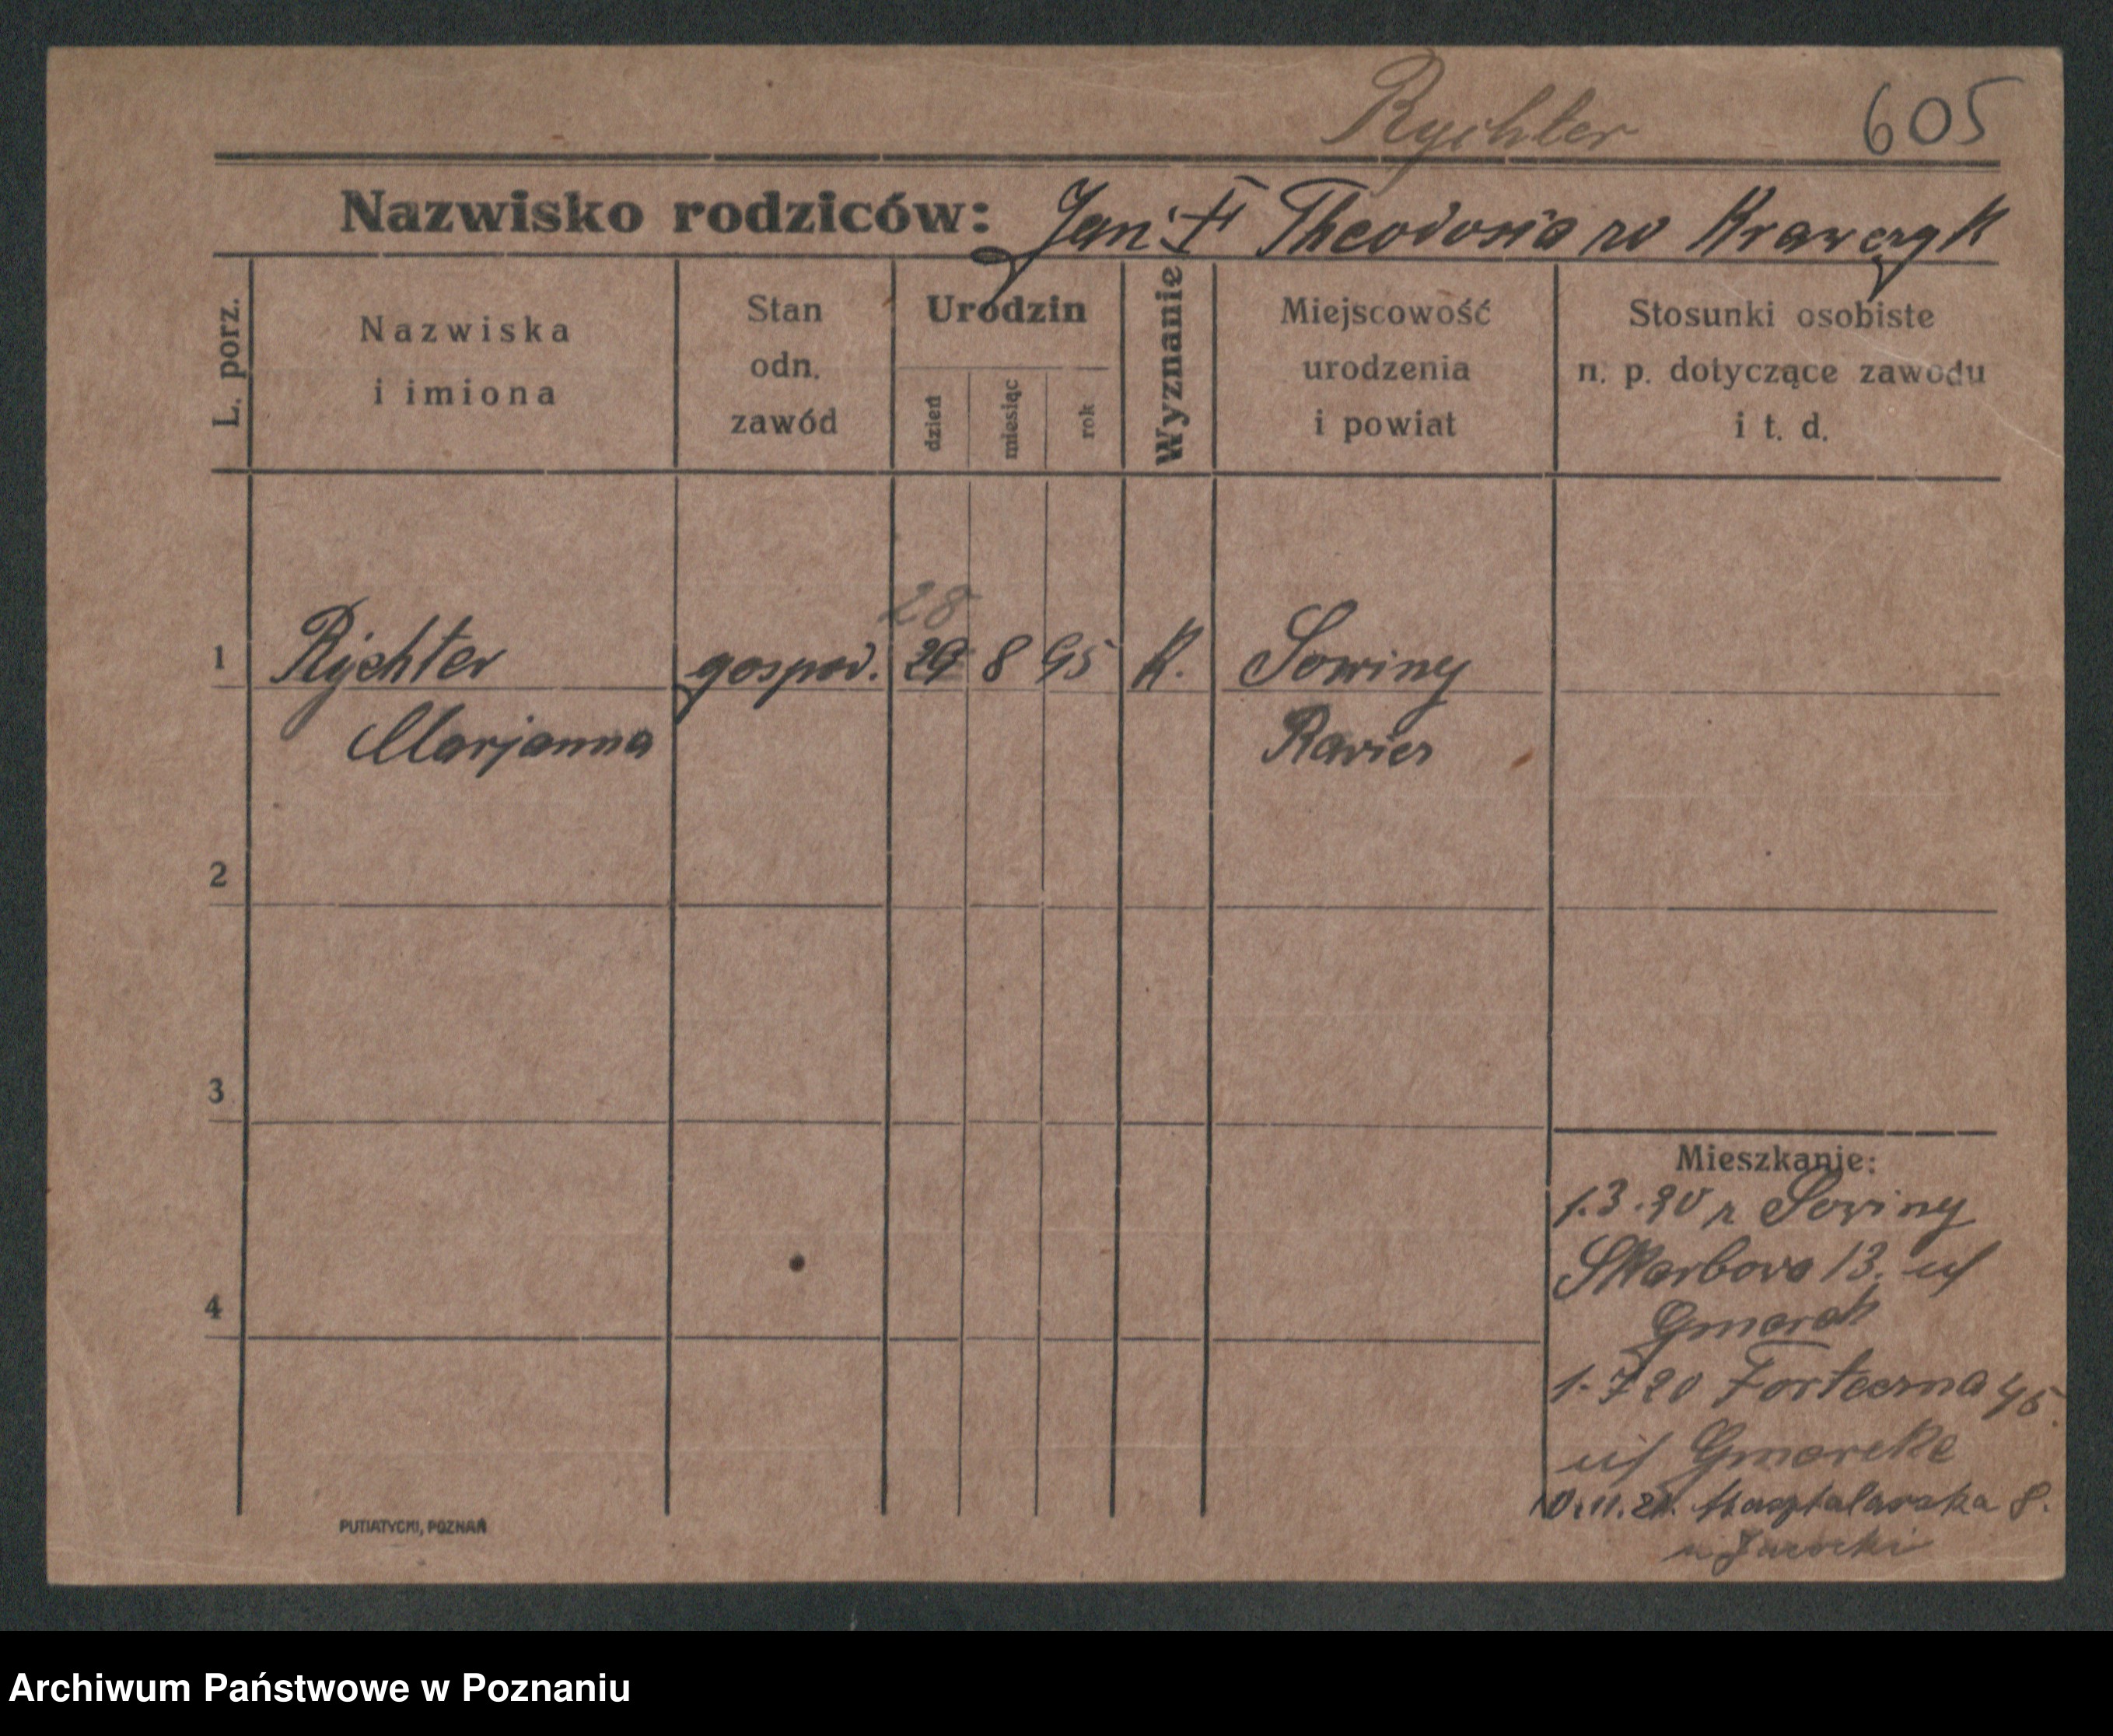 Rychter 605
Nazwisko rodziców: Jan i Theodosia ro Krawczyk
L. porz.
Nazwiska
i imiona
Stan
odn.
zawód
Urodzin
dzień
miesiąc
rok
Wyznanie
Miejscowość
urodzenia
i powiat
Stosunki osobiste
n. p. dotyczące zawodu
i t. d.
28
1 Rychter gospod. 29 8 95 K. Sowiny
Marjanna Rawicz
2
3
4
Mieszkanie:
1.3.20 z Sowiny
Skarbowa 13.
1.7 20 Forteczna 45.
10.11.21. Masztalarska 8.
PUTIATYCKI, POZNAŃ
Archiwum Państwowe w Poznaniu